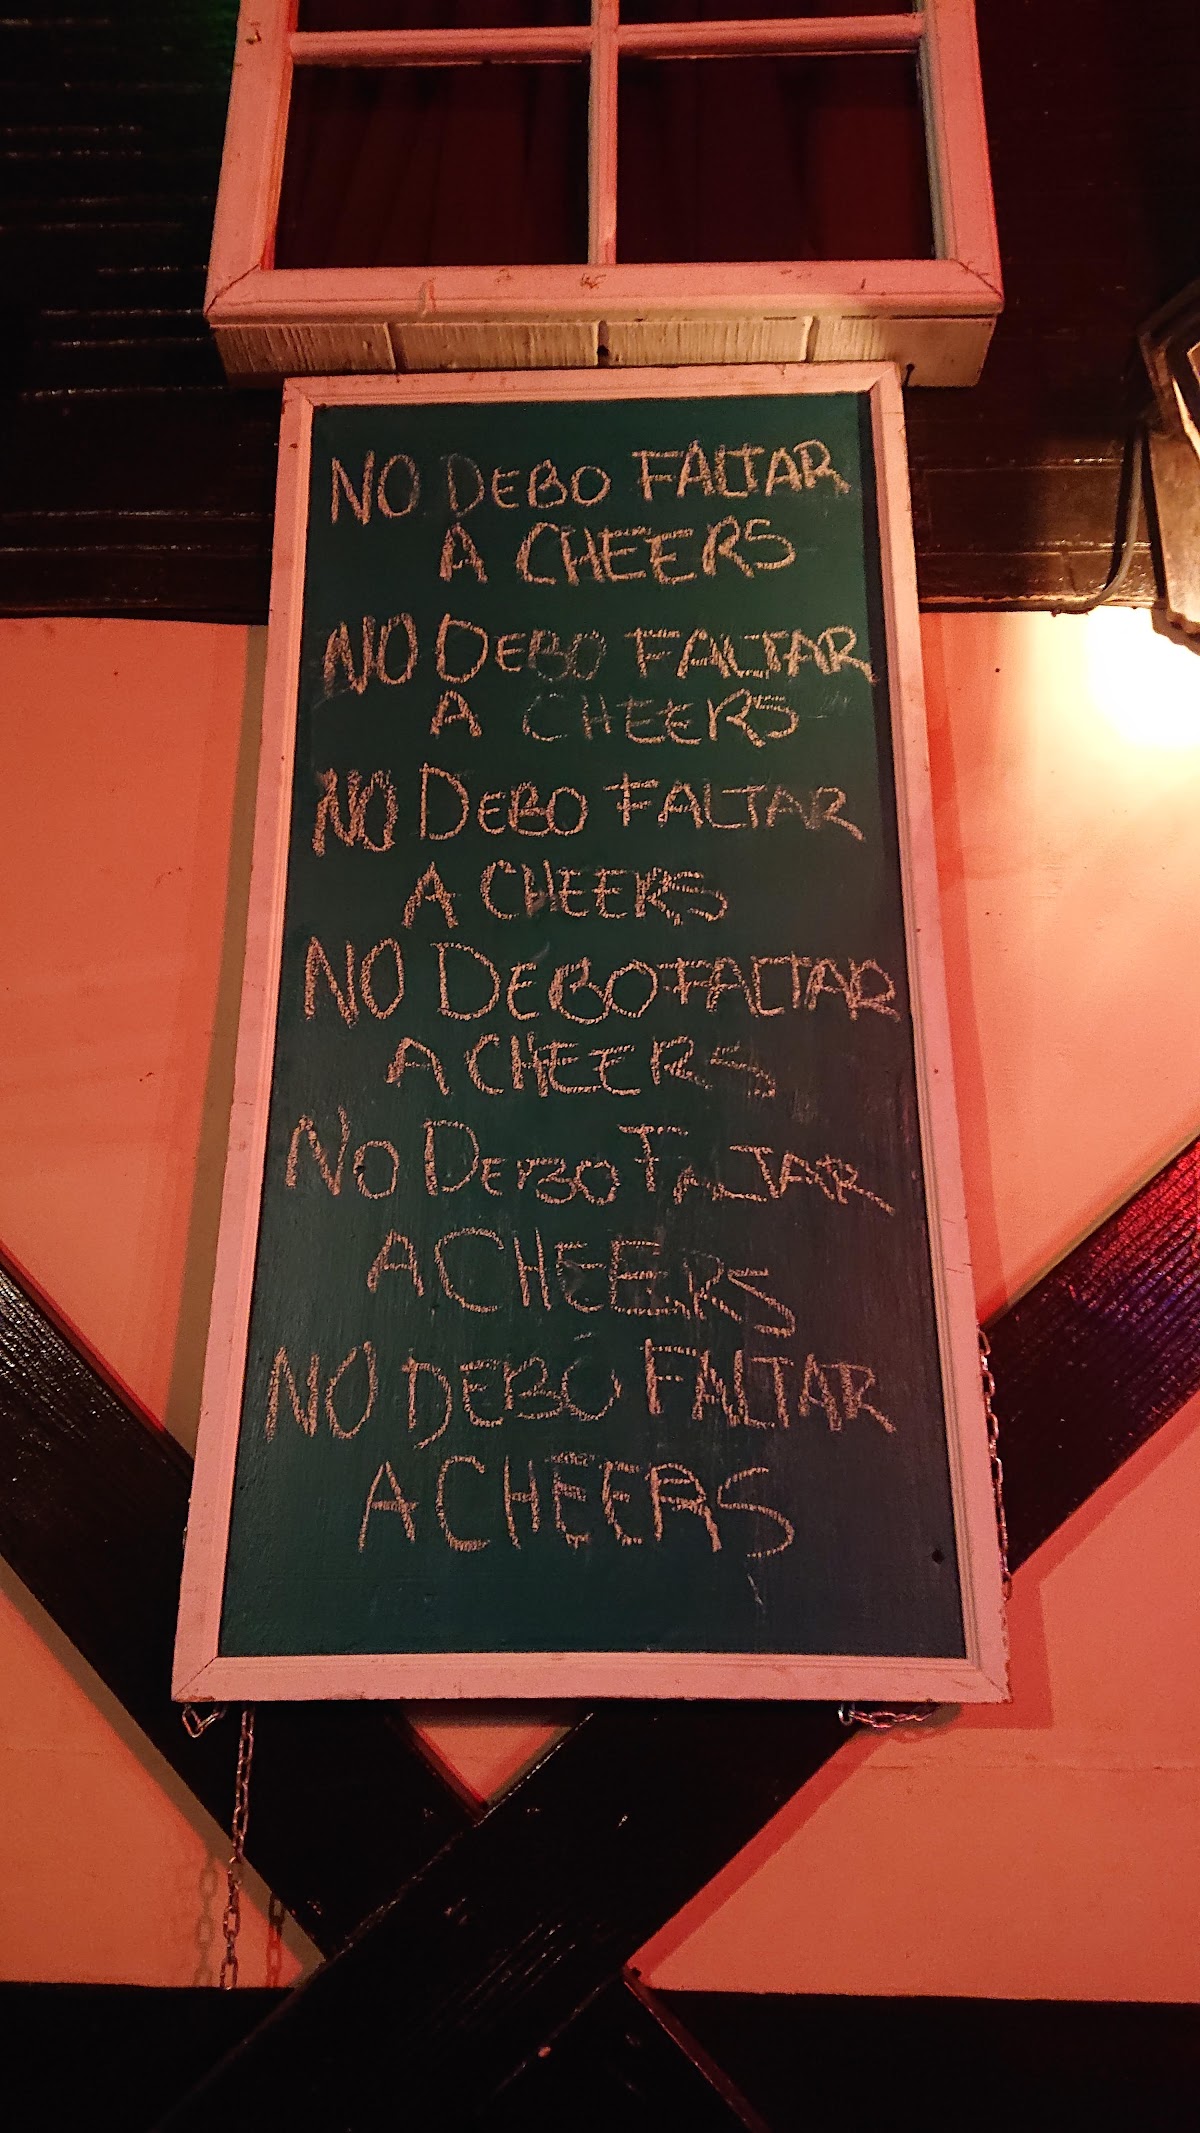 NO DEBO FALTAR
A CHEERS
NO DEBO FALTAR
A CHEERS
NO DEBO FALTAR
A CHEERS
NO DEBO FALTAR
A CHEERS
NO DEBO FALTAR
A CHEERS
NO DEBO FALTAR
A CHEERS